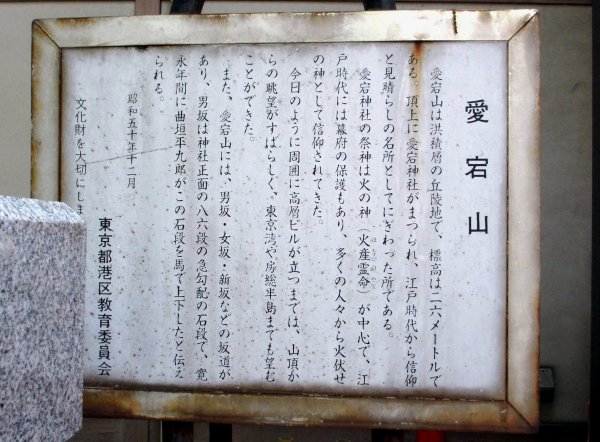 愛宕山
愛宕山は洪積層の丘陵地で、標高は二六メートルで
ある。頂上に愛宕神社がまつられ、江戸時代から信仰
と見晴らしの名所としてにぎわった所である。
愛宕神社の祭神は火の神（火産霊命）が中心で、江
戸時代には幕府の保護もあり、多くの人々から火伏せ
の神として信仰されてきた。
今日のように周囲に高層ビルが立つまでは、山頂か
らの眺望がすばらしく、東京湾や房総半島までも望む
ことができた。
また、愛宕山には、男坂・女坂・新坂などの坂道が
あり、男坂は神社正面の八六段の急勾配の石段で、寛
永年間に曲垣平九郎がこの石段を馬で上下したと伝え
られる。
昭和五十年十二月
文化財を大切にしま
東京都港区教育委員会